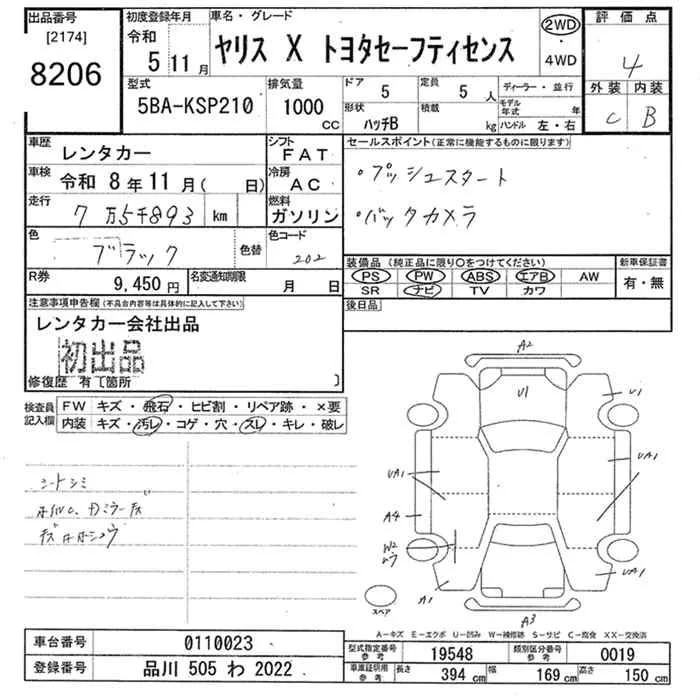 出品番号
[2174]
8206
初度登録年月
令和
5 11 月
車名・グレード
ヤリス X トヨタセーフティセンス
2WD
・
4WD
評価点
4
外装 内装
C B
型式
5BA-KSP210
排気量
1000
CC
ドア
5
形状
ハッチB
定員
5 人
積載
kg
ディーラー・並行
モデル年式 年
ハンドル 左・右
車歴
レンタカー
シフト
FAT
車検
令和 8年 11月( 日)
冷房
AC
走行
7万5千893 km
燃料
ガソリン
色
ブラック
色替
色コード
202
R券
9,450 円
名変通知期限
月 日
セールスポイント(正常に機能するものに限ります)
・プッシュスタート
・バックカメラ
装備品 (純正品に限り○をつけてください)
PS PW ABS エアB AW
SR ナビ TV カワ
新車保証書
有・無
後日品
注意事項申告欄(不具合内容等は具体的に記入して下さい)
レンタカー会社出品
初出品
修復歴 有〔箇所 〕
検査員
記入欄
FW キズ・飛石・ヒビ割・リペア跡・×要
内装 キズ・汚レ・コゲ・穴・スレ・キレ・破レ
シートシミ
A2
U1
U1
UA1
UA1
A4
W2
ムラ
A1
UA1
A3
スペア
A-キズ E-エクボ U-凹み W-補修跡 S-サビ C-腐食 XX-交換済
車台番号
0110023
登録番号
品川 505 わ 2022
型式指定番号
参考
19548
類別区分番号
参考
0019
車庫証明用
参考
長さ 394 cm 幅 169 cm 高さ 150 cm